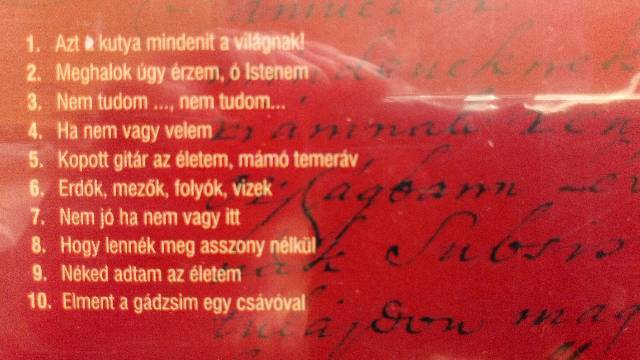 1. Azt a kutya mindenit a világnak!
2. Meghalok úgy érzem, ó Istenem
3. Nem tudom ..., nem tudom...
4. Ha nem vagy velem
5. Kopott gitár az életem, mámó temeráv
6. Erdők, mezők, folyók, vizek
7. Nem jó ha nem vagy itt
8. Hogy lennék meg asszony nélkül
9. Néked adtam az életem
10. Elment a gádzsim egy csávóval
Subsis
mag